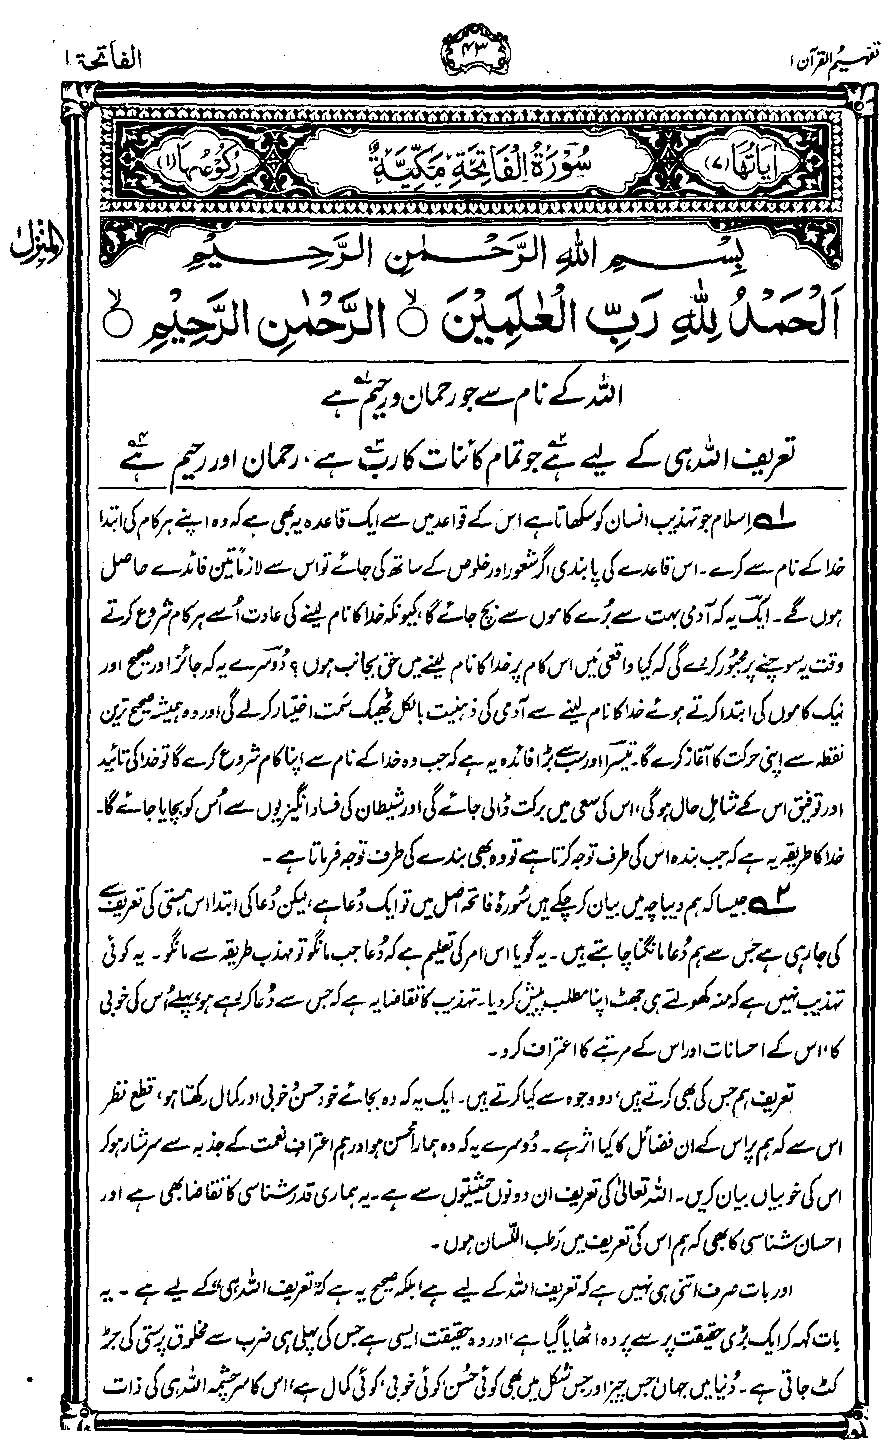 تفہیم القرآن ۱
۴۳
الفاتحۃ ۱
اٰیَاتُهَا (۷)
سُوْرَةُ الْفَاتِحَةِ مَكِّیَّةٌ
رُكُوْعُهَا (۱)
المنزل
بِسْمِ اللّٰهِ الرَّحْمٰنِ الرَّحِیْمِ
اَلْحَمْدُ لِلّٰهِ رَبِّ الْعٰلَمِیْنَ ۙ الرَّحْمٰنِ الرَّحِیْمِ ۙ
اللہ کے نام سے جو رحمان و رحیم ہے
تعریف اللہ ہی کے لیے ہے جو تمام کائنات کا رب ہے، رحمان اور رحیم ہے
۱ اسلام جو تہذیب انسان کو سکھاتا ہے اس کے قواعد میں سے ایک قاعدہ یہ بھی ہے کہ وہ اپنے ہر کام کی ابتدا
خدا کے نام سے کرے۔ اس قاعدے کی پابندی اگر شعور اور خلوص کے ساتھ کی جائے تو اس سے لازماً تین فائدے حاصل
ہوں گے۔ ایک یہ کہ آدمی بہت سے بُرے کاموں سے بچ جائے گا، کیونکہ خدا کا نام لینے کی عادت اُسے ہر کام شروع کرتے
وقت یہ سوچنے پر مجبور کردے گی کہ کیا واقعی میں اس کام پر خدا کا نام لینے میں حق بجانب ہوں؟ دُوسرے یہ کہ جائز اور صحیح اور
نیک کاموں کی ابتدا کرتے ہوئے خدا کا نام لینے سے آدمی کی ذہنیت بالکل ٹھیک سَمت اختیار کرلے گی اور وہ ہمیشہ صحیح ترین
نقطہ سے اپنی حرکت کا آغاز کرے گا۔ تیسرا اور سب سے بڑا فائدہ یہ ہے کہ جب وہ خدا کے نام سے اپنا کام شروع کرے گا تو خدا کی تائید
اور توفیق اس کے شاملِ حال ہوگی، اس کی سعی میں برکت ڈالی جائے گی اور شیطان کی فساد انگیزیوں سے اُس کو بچایا جائے گا۔
خدا کا طریقہ یہ ہے کہ جب بندہ اس کی طرف توجہ کرتا ہے تو وہ بھی بندے کی طرف توجہ فرماتا ہے۔
۲ جیسا کہ ہم دیباچہ میں بیان کرچکے ہیں سُورۂ فاتحہ اصل میں تو ایک دُعا ہے، لیکن دُعا کی ابتدا اس ہستی کی تعریف سے
کی جارہی ہے جس سے ہم دُعا مانگنا چاہتے ہیں۔ یہ گویا اس امر کی تعلیم ہے کہ دُعا جب مانگو تو مہذب طریقہ سے مانگو۔ یہ کوئی
تہذیب نہیں ہے کہ منہ کھولتے ہی جھٹ اپنا مطلب پیش کر دیا۔ تہذیب کا تقاضا یہ ہے کہ جس سے دُعا کررہے ہو، پہلے اُس کی خوبی
کا، اس کے احسانات اور اس کے مرتبے کا اعتراف کرو۔
تعریف ہم جس کی بھی کرتے ہیں، دو وجوہ سے کیا کرتے ہیں۔ ایک یہ کہ وہ بجائے خود حسن و خوبی اور کمال رکھتا ہو، قطع نظر
اس سے کہ ہم پر اس کے ان فضائل کا کیا اثر ہے۔ دُوسرے یہ کہ وہ ہمارا محسن ہو اور ہم اعترافِ نعمت کے جذبہ سے سرشار ہوکر
اس کی خوبیاں بیان کریں۔ اللہ تعالیٰ کی تعریف ان دونوں حیثیتوں سے ہے۔ یہ ہماری قدر شناسی کا تقاضا بھی ہے اور
احسان شناسی کا بھی کہ ہم اس کی تعریف میں رَطب اللّسان ہوں۔
اور بات صرف اتنی ہی نہیں ہے کہ تعریف اللہ کے لیے ہے، بلکہ صحیح یہ ہے کہ ”تعریف اللہ ہی“ کے لیے ہے۔ یہ
بات کہہ کر ایک بڑی حقیقت پر سے پردہ اٹھایا گیا ہے، اور وہ حقیقت ایسی ہے جس کی پہلی ہی ضرب سے مخلوق پرستی کی جڑ
کٹ جاتی ہے۔ دُنیا میں جہاں جس چیز اور جس شکل میں بھی کوئی حُسن، کوئی خوبی، کوئی کمال ہے، اس کا سرچشمہ اللہ ہی کی ذات